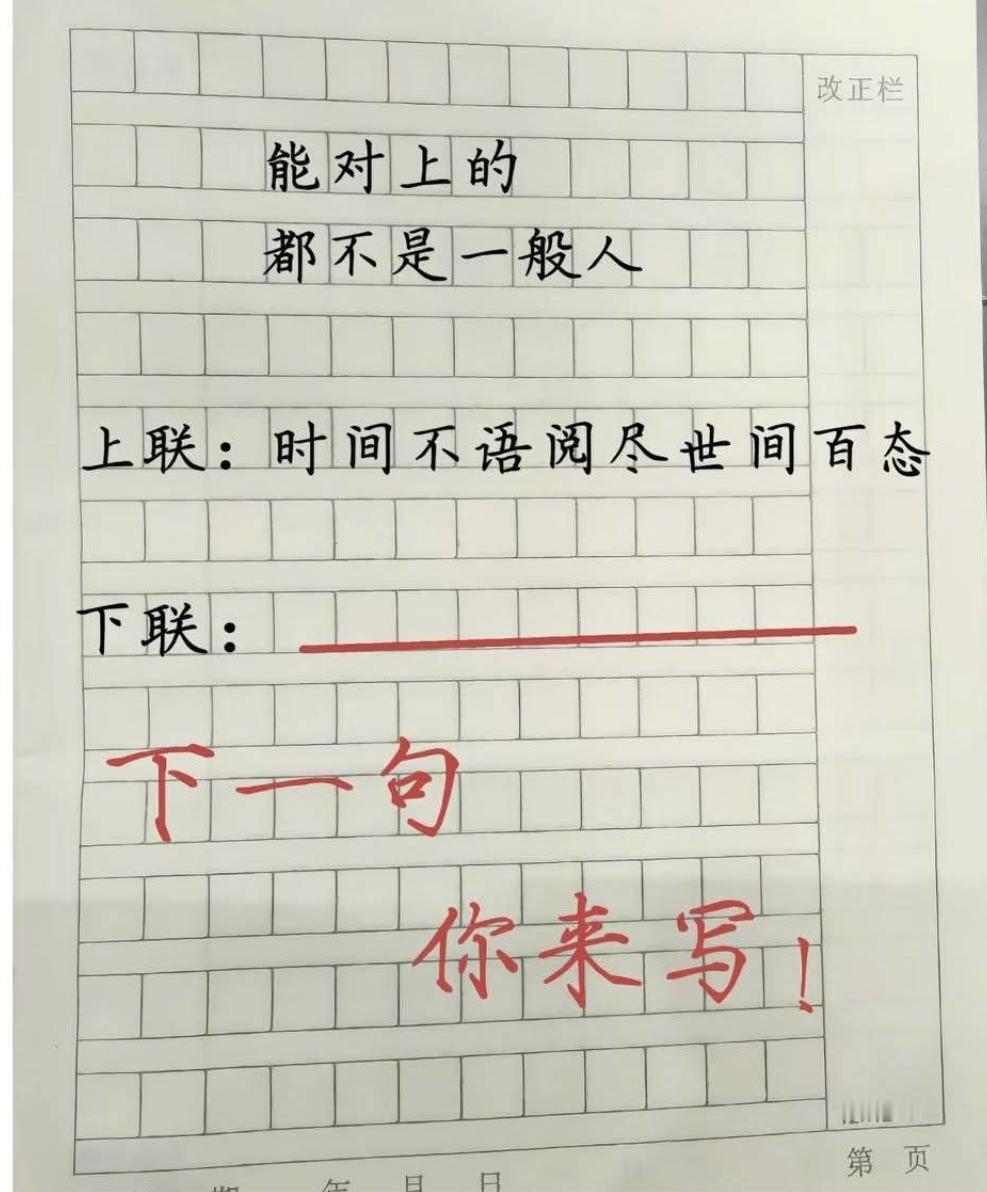 改正栏
能对上的
都不是一般人
上联：时间不语阅尽世间百态
下联：
下一句
你来写！
第 页
年 月 日